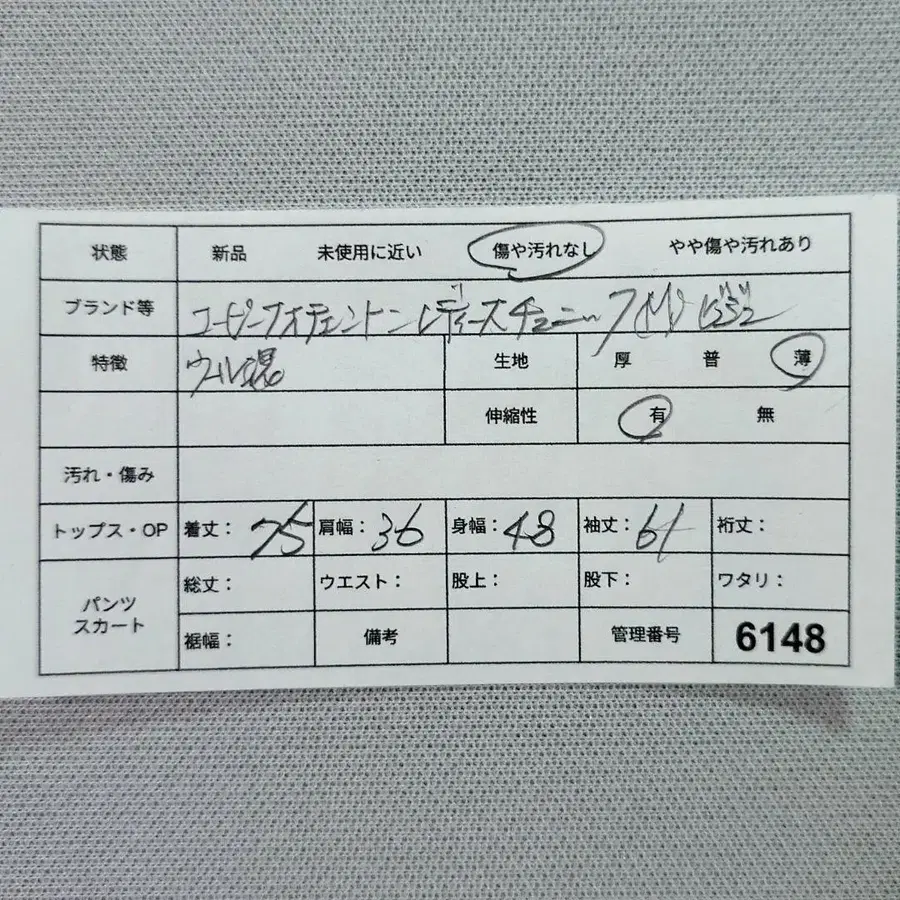 状態 新品 未使用に近い 傷や汚れなし やや傷や汚れあり
ブランド等 コーピーフォチェントン レディース チュニック
特徴 ウール混 生地 厚 普 薄
伸縮性 有 無
汚れ・傷み
トップス・OP 着丈： 75 肩幅： 36 身幅： 48 袖丈： 61 裄丈：
パンツ スカート 総丈： ウエスト： 股上： 股下： ワタリ：
裾幅： 備考 管理番号 6148